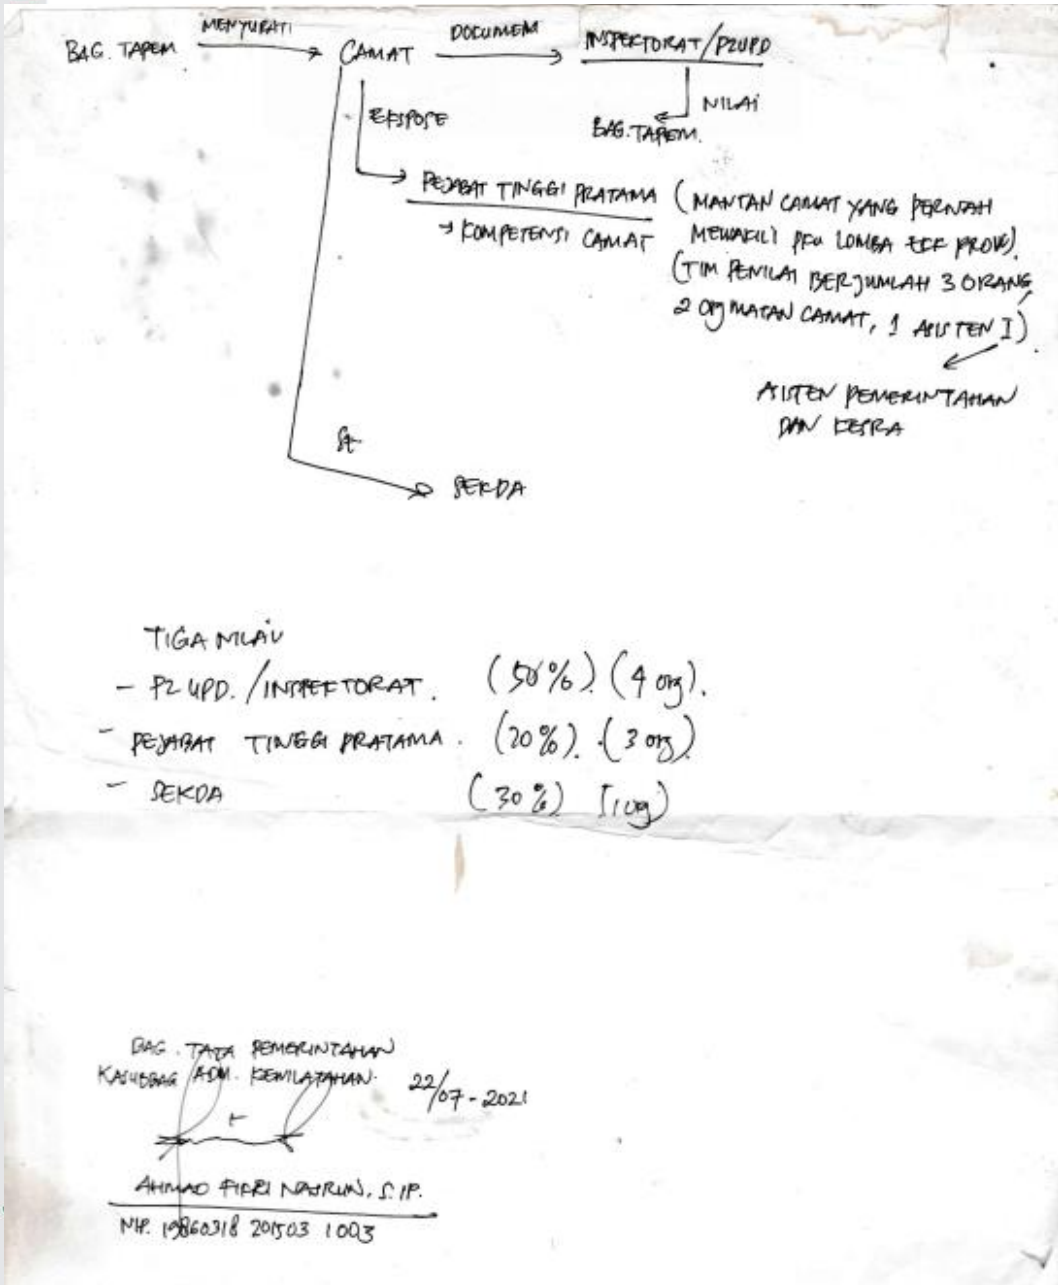 BAG. TAPEM MENYURATI CAMAT DOCUMEN INSPEKTORAT/P2UPD
NILAI
BAG. TAPEM.
EKSPOSE
PEJABAT TINGGI PRATAMA (MANTAN CAMAT YANG PERNAH
→ KOMPETENSI CAMAT MEWAKILI LOMBA PROV).
(TIM PENILAI BERJUMLAH 3 ORANG,
2 org MATAN CAMAT, 1 ASISTEN I)
ASISTEN PEMERINTAHAN
DAN KESRA
SEKDA
TIGA NILAI
- P2UPD./INSPEKTORAT. (50%). (4 org).
- PEJABAT TINGGI PRATAMA. (20%). (3 org)
- SEKDA (30%) (1 org)
BAG. TATA PEMERINTAHAN
KASUBBAG ADM. KEWILAYAHAN.
22/07-2021
AHMAD FIKRI NASRUN, S.IP.
NIP. 19860318 201503 1003